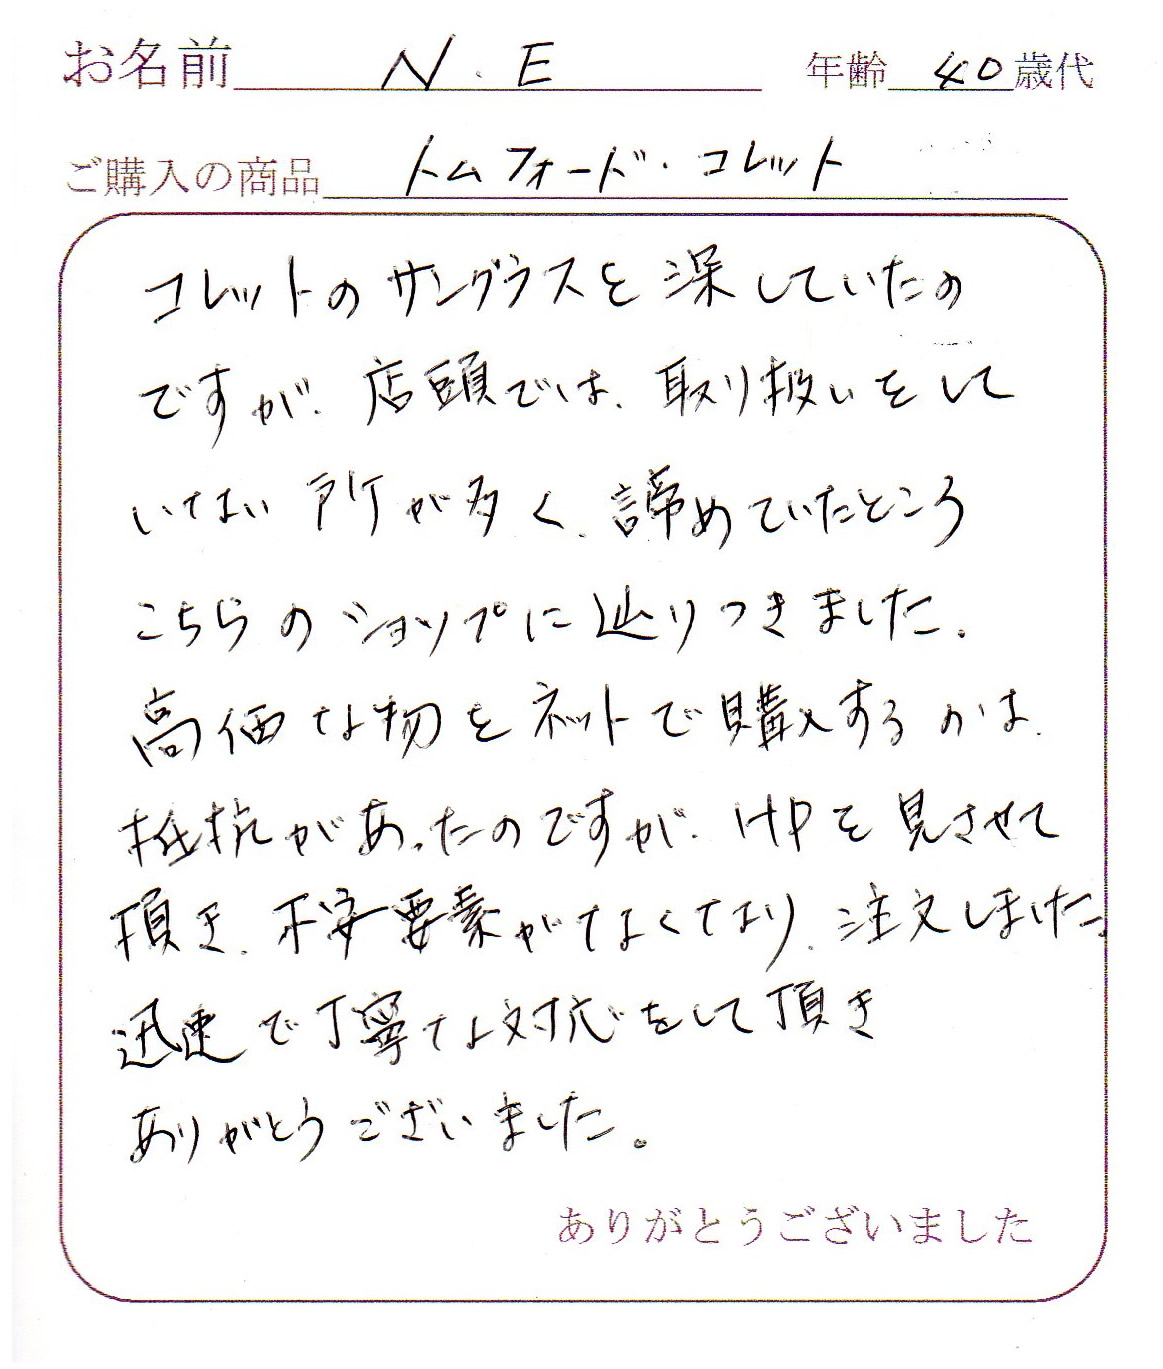 お名前 N.E 年齢 40 歳代
ご購入の商品 トムフォード・コレット
コレットのサングラスを深していたの
ですが、店頭では、取り扱いをして
いない所が多く、諦めていたところ
こちらのショップに辿りつきました。
高価な物をネットで購入するのは、
抵抗があったのですが、HPを見させて
頂き、不安要素がなくなり、注文しました。
迅速で丁寧な対応をして頂き
ありがとうございました。
ありがとうございました